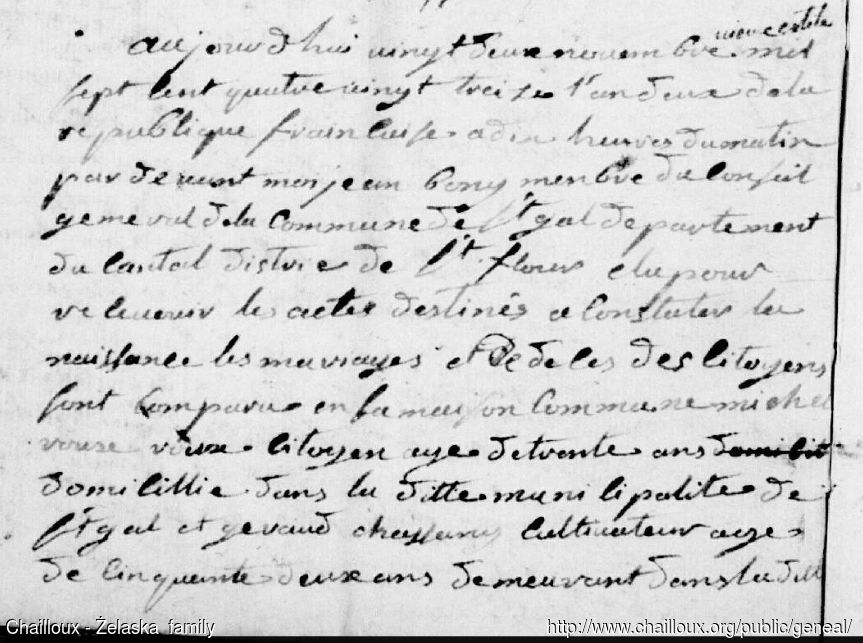 aujourdhui vingt deux novembre mil
sept cent quatre vingt treize l'an deux de la
republique francaise a dix heures du matin
par devant moi jean bony menbre du conseil
general de la commune de St gal departement
du cantal distric de St flour elu pour
recevoir les actes destinés a constater la
naissance les mariages et de deces des citoyens
sont comparu en la maison commune michel
citoyen age de trente ans
domicillie dans la ditte municipalite de
St gal et geraud chassang cultivateur age
de cinquante deux ans demeurant dans la ditte
Chailloux - Żelaska family
http://www.chailloux.org/public/geneal/